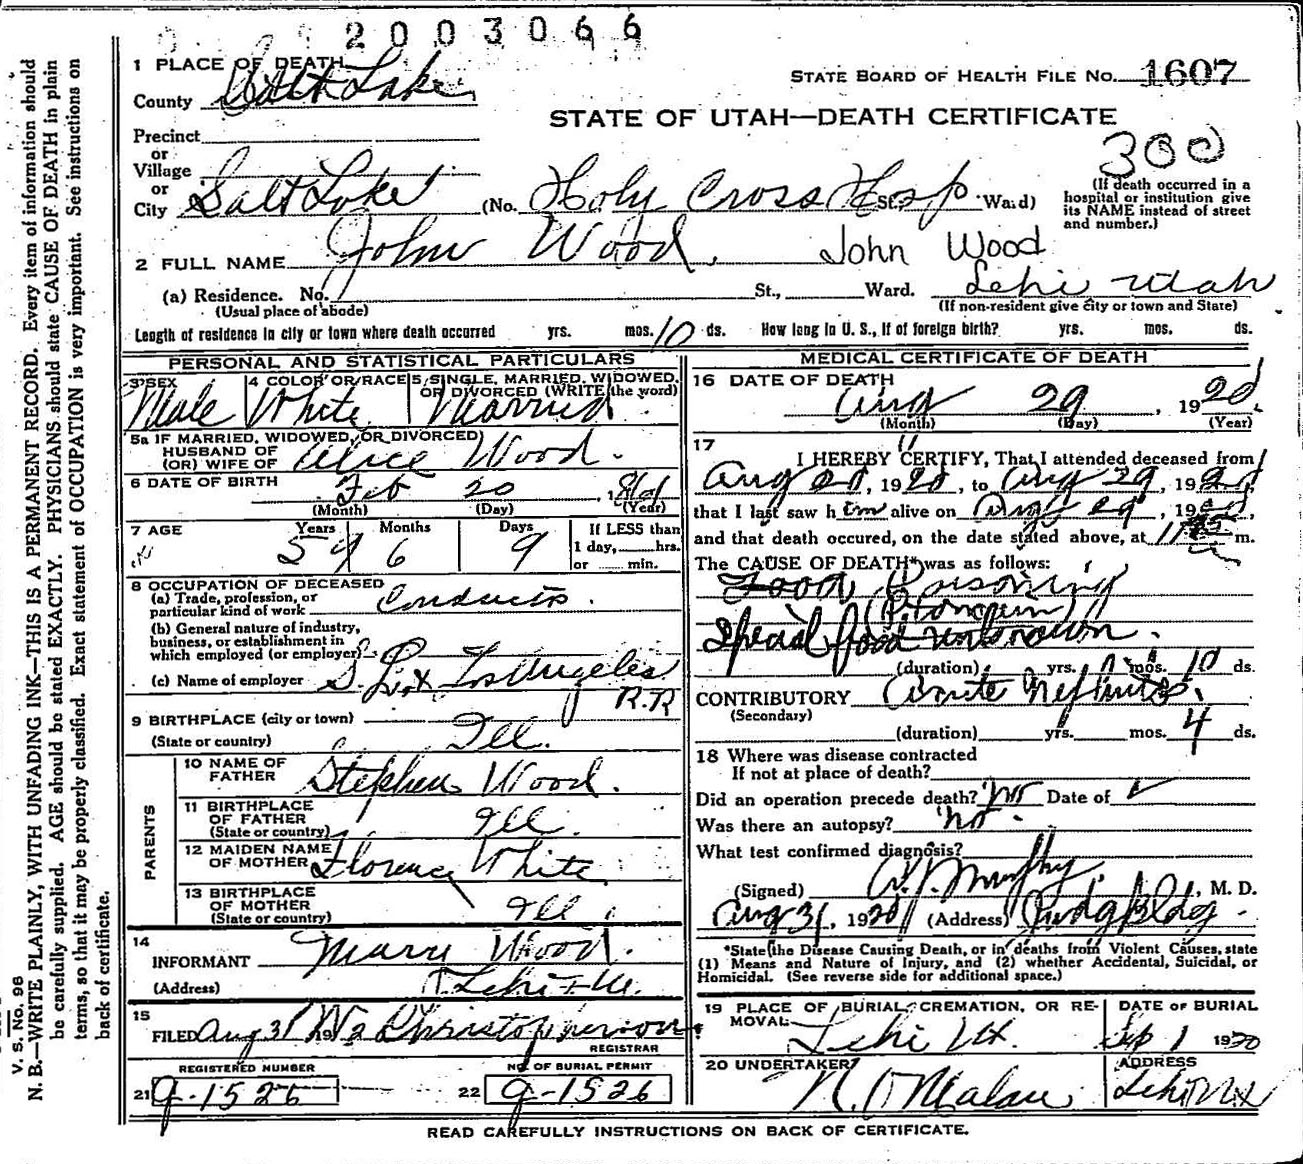 2003066
1 PLACE OF DEATH
County Salt Lake
STATE BOARD OF HEALTH FILE NO. 1607
STATE OF UTAH—DEATH CERTIFICATE
300
Precinct
or
Village
or
City Salt Lake (No. Holy Cross Hosp St. Ward)
(If death occurred in a hospital or institution give its NAME instead of street and number.)
2 FULL NAME John Wood. John Wood
(a) Residence. No. St., Ward. Lehi Utah
(Usual place of abode) (If non-resident give city or town and State)
Length of residence in city or town where death occurred yrs. mos. 10 ds. How long in U. S., if of foreign birth? yrs. mos. ds.
PERSONAL AND STATISTICAL PARTICULARS
3 SEX Male
4 COLOR OR RACE White
5 SINGLE, MARRIED, WIDOWED, OR DIVORCED (WRITE the word) Married
5a IF MARRIED, WIDOWED, OR DIVORCED
HUSBAND OF
(OR) WIFE OF Alice Wood.
6 DATE OF BIRTH Feb 20, 1861
(Month) (Day) (Year)
7 AGE Years Months Days If LESS than
59 6 9 1 day, hrs.
or min.
8 OCCUPATION OF DECEASED
(a) Trade, profession, or
particular kind of work Conductor.
(b) General nature of industry,
business, or establishment in
which employed (or employer)
(c) Name of employer S. L. & Los Angeles
R.R
9 BIRTHPLACE (city or town)
(State or country) Ill.
PARENTS
10 NAME OF
FATHER Stephen Wood.
11 BIRTHPLACE
OF FATHER
(State or country) Ill.
12 MAIDEN NAME
OF MOTHER Florence White
13 BIRTHPLACE
OF MOTHER
(State or country) Ill.
14
INFORMANT Mary Wood.
(Address) Lehi
15
FILED Aug 31 192 Christopherson
REGISTRAR
REGISTERED NUMBER
21 9-1526
NO. OF BURIAL PERMIT
22 9-1526
MEDICAL CERTIFICATE OF DEATH
16 DATE OF DEATH
Aug 29, 1920
(Month) (Day) (Year)
17
I HEREBY CERTIFY, That I attended deceased from
Aug 20, 1920, to Aug 29, 1920
that I last saw him alive on Aug 29, 1920
and that death occured, on the date stated above, at m.
The CAUSE OF DEATH* was as follows:
Food Poisoning
(Ptomain)
Special food unknown.
(duration) yrs. mos. 10 ds.
CONTRIBUTORY Acute Nephritis.
(Secondary)
(duration) yrs. mos. 4 ds.
18 Where was disease contracted
If not at place of death?
Did an operation precede death? No Date of
Was there an autopsy? No.
What test confirmed diagnosis?
(Signed) Murphy, M. D.
Aug 31, 1920 (Address) Judge Bldg.
*State the Disease Causing Death, or in deaths from Violent Causes, state
(1) Means and Nature of Injury, and (2) whether Accidental, Suicidal, or
Homicidal. (See reverse side for additional space.)
19 PLACE OF BURIAL, CREMATION, OR RE-
MOVAL Lehi Ut.
DATE OF BURIAL
Sep 1 1920
20 UNDERTAKER
N. O. Malan
ADDRESS
Lehi Ut
READ CAREFULLY INSTRUCTIONS ON BACK OF CERTIFICATE.
V. S. No. 98
N. B.—WRITE PLAINLY, WITH UNFADING INK—THIS IS A PERMANENT RECORD. Every item of information should
be carefully supplied. AGE should be stated EXACTLY. PHYSICIANS should state CAUSE OF DEATH in plain
terms, so that it may be properly classified. Exact statement of OCCUPATION is very important. See instructions on
back of certificate.